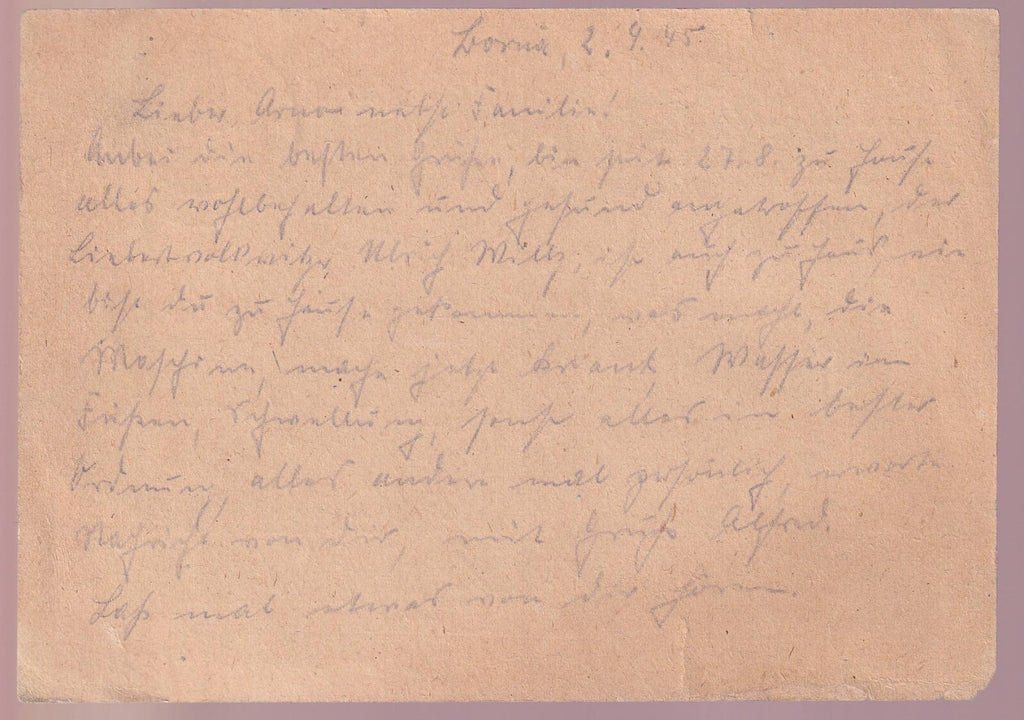 Borna, 2. 9. 45
Lieber Arno nebst Familie!
Anbei die besten Grüße, bin seit 27.8. zu Hause
alles wohlbehalten und gesund angetroffen, der
Ulrich Wills, ist auch zu Haus, wie
bist du zu Hause gekommen, was macht, die
Maschine, mache jetzt krank, Wasser in
Füßen, Schwellung, sonst alles in bester
Ordnung, alles andere mal persönlich, erwarte
Nachricht von dir, mit Gruß Alfred.
Laß mal etwas von dir hören.